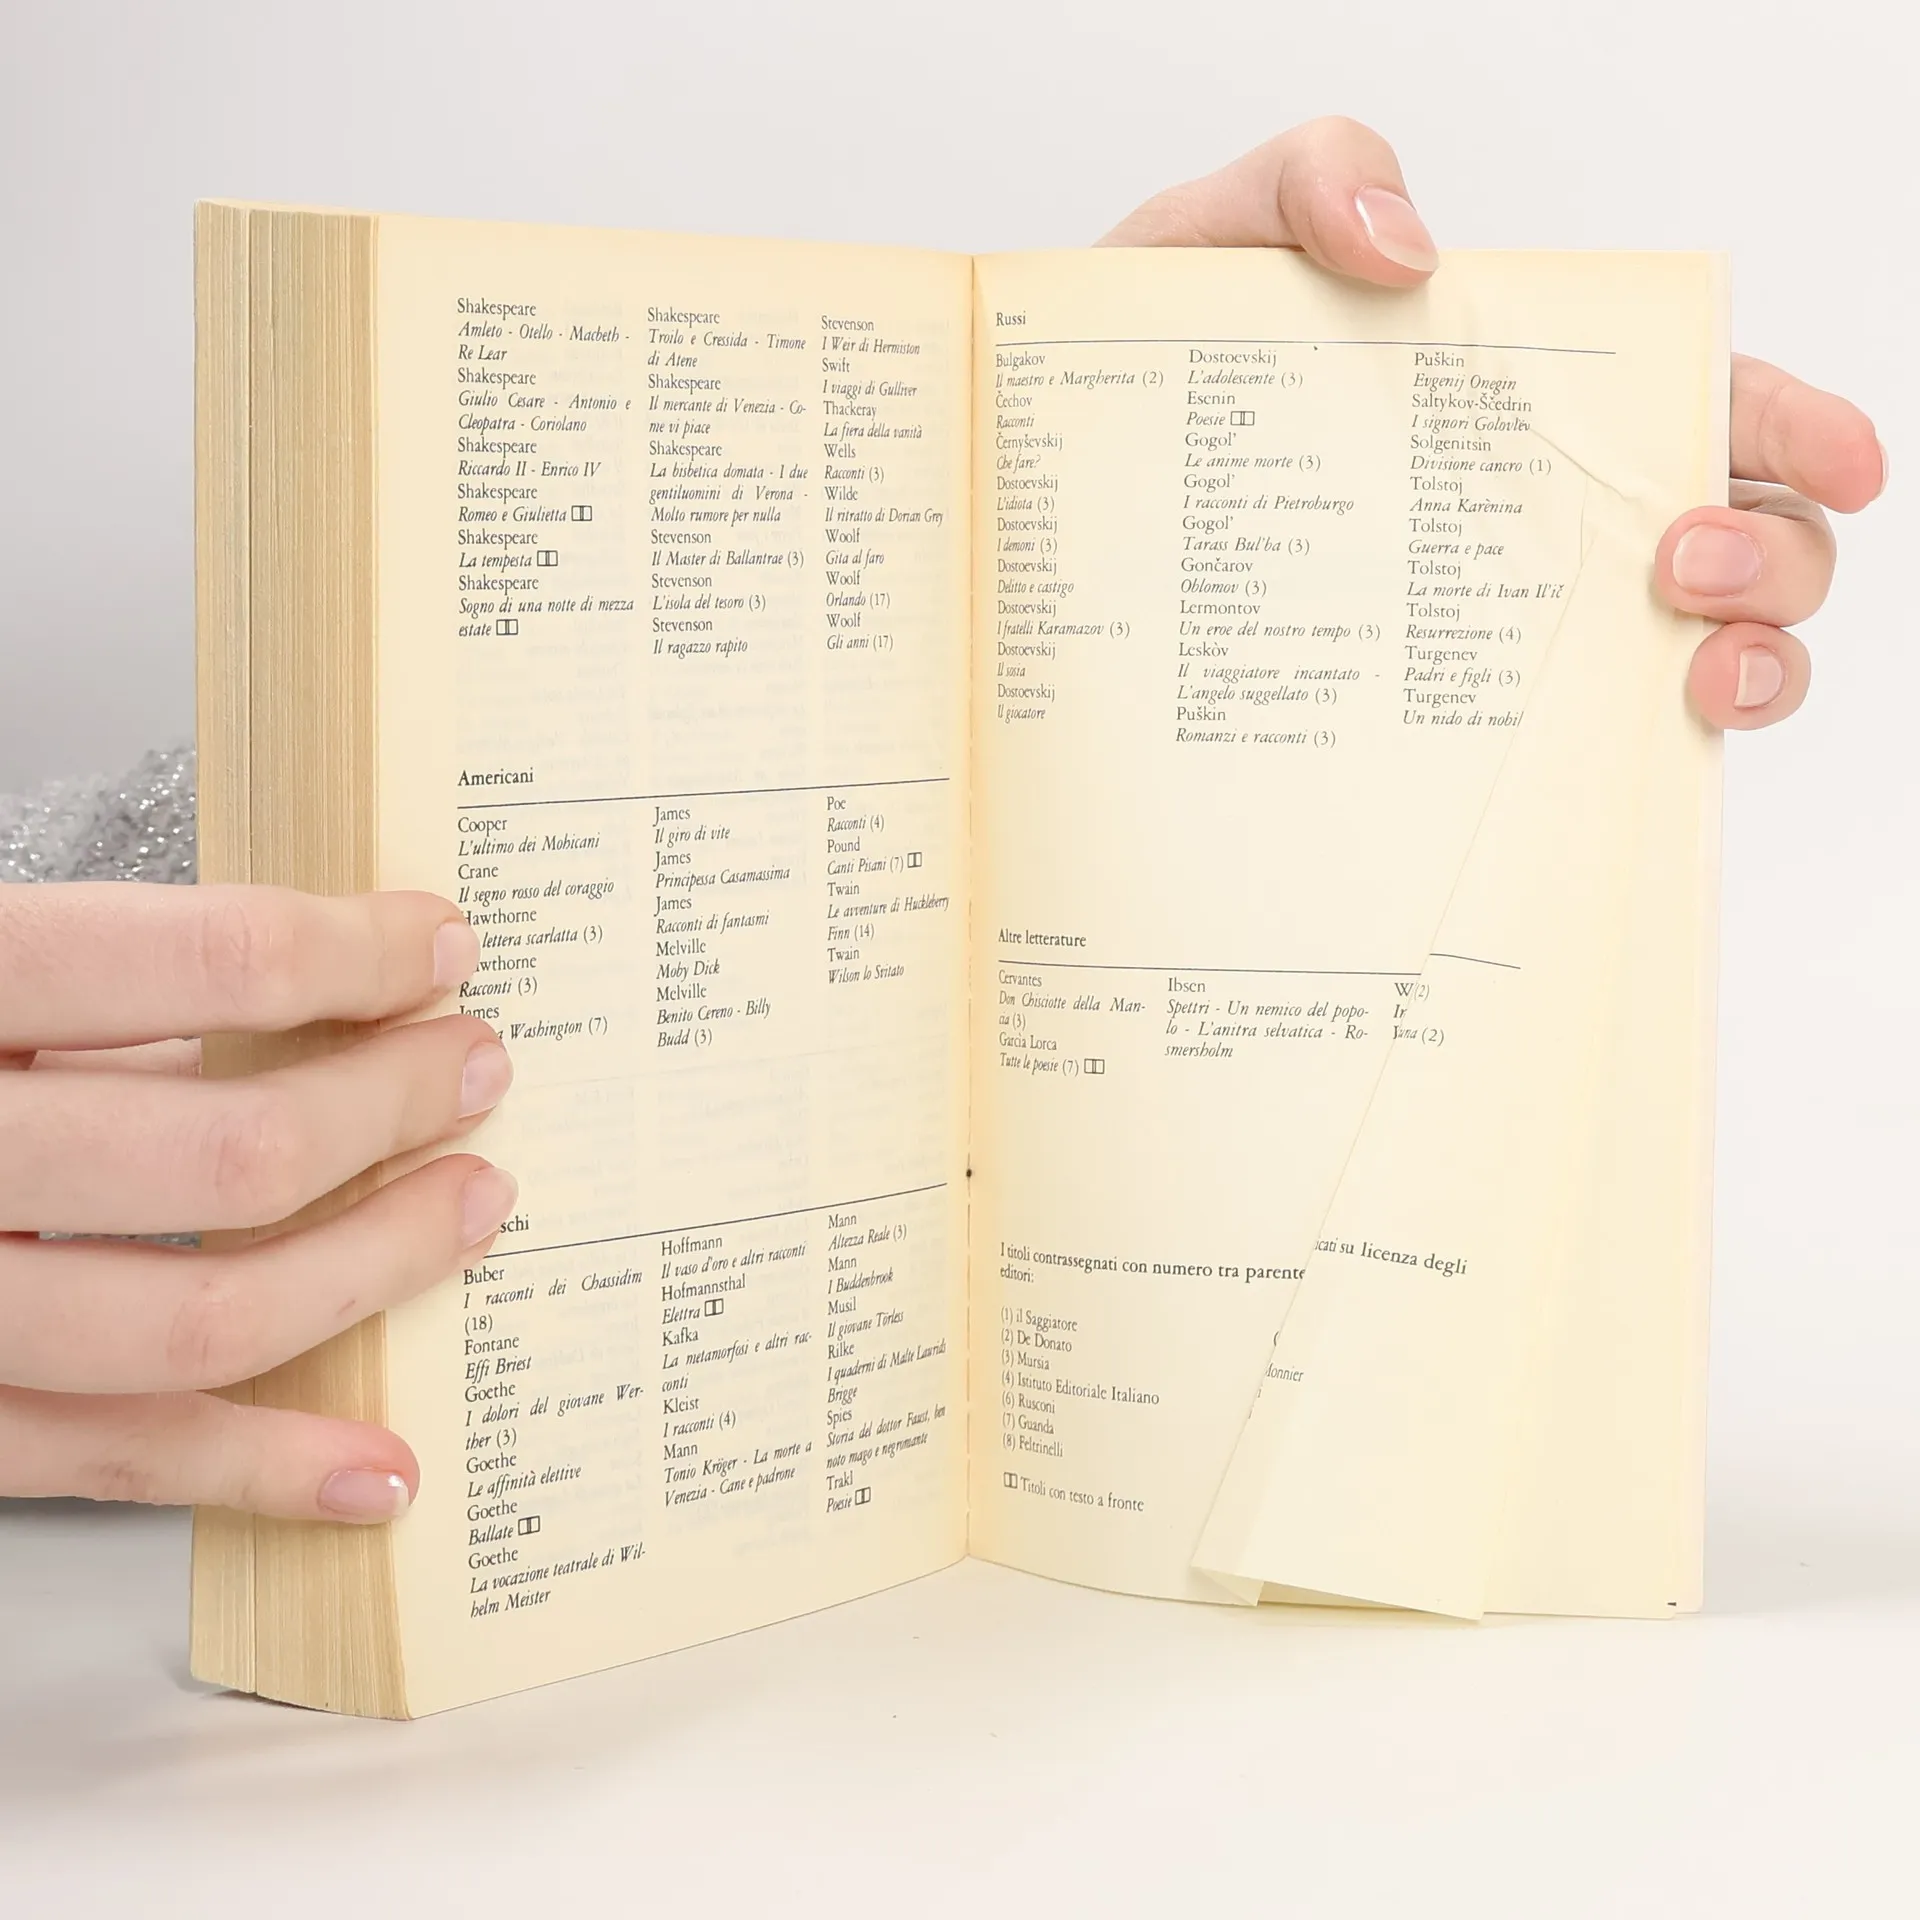 Shakespeare
Amleto - Otello - Macbeth -
Re Lear
Shakespeare
Giulio Cesare - Antonio e
Cleopatra - Coriolano
Shakespeare
Riccardo II - Enrico IV
Shakespeare
Romeo e Giulietta
Shakespeare
La tempesta
Shakespeare
Sogno di una notte di mezza
estate
Shakespeare
Troilo e Cressida - Timone
di Atene
Shakespeare
Il mercante di Venezia - Co-
me vi piace
Shakespeare
La bisbetica domata - I due
gentiluomini di Verona -
Molto rumore per nulla
Stevenson
Il Master di Ballantrae (3)
Stevenson
L'isola del tesoro (3)
Stevenson
Il ragazzo rapito
Stevenson
I Weir di Hermiston
Swift
I viaggi di Gulliver
Thackeray
La fiera della vanità
Wells
Racconti (3)
Wilde
Il ritratto di Dorian Grey
Woolf
Gita al faro
Woolf
Orlando (17)
Woolf
Gli anni (17)
Americani
Cooper
L'ultimo dei Mohicani
Crane
Il segno rosso del coraggio
Hawthorne
lettera scarlatta (3)
wthorne
Racconti (3)
James
Washington (7)
James
Il giro di vite
James
Principessa Casamassima
James
Racconti di fantasmi
Melville
Moby Dick
Melville
Benito Cereno - Billy
Budd (3)
Poe
Racconti (4)
Pound
Canti Pisani (7)
Twain
Le avventure di Huckleberry
Finn (14)
Twain
Wilson lo Svitato
schi
Buber
I racconti dei Chassidim
(18)
Fontane
Effi Briest
Goethe
I dolori del giovane Wer-
ther (3)
Goethe
Le affinità elettive
Goethe
Ballate
Goethe
La vocazione teatrale di Wil-
helm Meister
Hoffmann
Il vaso d'oro e altri racconti
Hofmannsthal
Elettra
Kafka
La metamorfosi e altri rac-
conti
Kleist
I racconti (4)
Mann
Tonio Kröger - La morte a
Venezia - Cane e padrone
Mann
Altezza Reale (3)
Mann
I Buddenbrook
Musil
Il giovane Törless
Rilke
I quaderni di Malte Laurids
Brigge
Spies
Storia del dottor Faust, ben
noto mago e negromante
Trakl
Poesie
Russi
Bulgakov
Il maestro e Margherita (2)
Čechov
Racconti
Černyševskij
Che fare?
Dostoevskij
L'idiota (3)
Dostoevskij
I demoni (3)
Dostoevskij
Delitto e castigo
Dostoevskij
I fratelli Karamazov (3)
Dostoevskij
Il sosia
Dostoevskij
Il giocatore
Dostoevskij
L'adolescente (3)
Esenin
Poesie
Gogol'
Le anime morte (3)
Gogol'
I racconti di Pietroburgo
Gogol'
Tarass Bul'ba (3)
Gončarov
Oblomov (3)
Lermontov
Un eroe del nostro tempo (3)
Leskòv
Il viaggiatore incantato -
L'angelo suggellato (3)
Puškin
Romanzi e racconti (3)
Puškin
Evgenij Onegin
Saltykov-Ščedrin
I signori Golovlëv
Solgenitsin
Divisione cancro (1)
Tolstoj
Anna Karènina
Tolstoj
Guerra e pace
Tolstoj
La morte di Ivan Il'ič
Tolstoj
Resurrezione (4)
Turgenev
Padri e figli (3)
Turgenev
Un nido di nobil
Altre letterature
Cervantes
Don Chisciotte della Man-
cia (3)
Garcìa Lorca
Tutte le poesie (7)
Ibsen
Spettri - Un nemico del popo-
lo - L'anitra selvatica - Ro-
smersholm
W (2)
(2)
I titoli contrassegnati con numero tra parente icati su licenza degli
editori:
(1) il Saggiatore
(2) De Donato
(3) Mursia
(4) Istituto Editoriale Italiano
(6) Rusconi
(7) Guanda
(8) Feltrinelli
Monnier
Titoli con testo a fronte